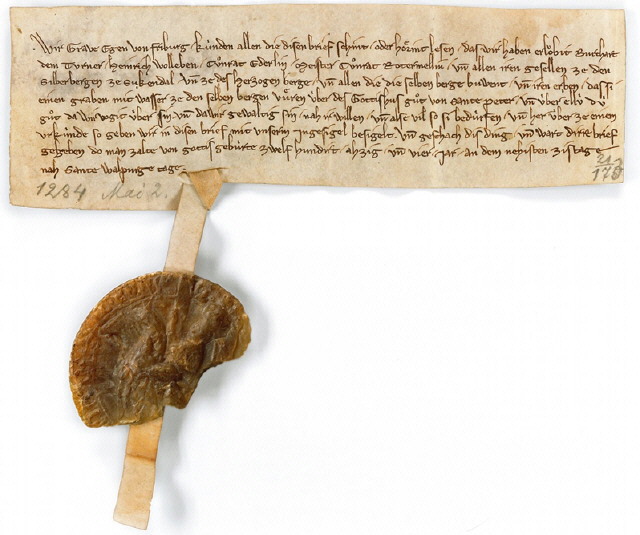 Wir Grave Egen von friburg · kúnden allen die disen brief sehint · oder hȯ́rint lesen · das wir haben erlȯbit Burchart
dem Turner · Heinrich Wolleben · Cůnrat Ederlin · Meister Cůnrat Rotermellin · vn̄ allen iren gesellen ze den
Silberbergen ze Sukendal · vn̄ ze des Herzogen berge · vn̄ allen die die selben berge buwent · vn̄ iren erben · das si
einen graben mit wasser ze den selben bergen vůren úber des Gottishus gůt von Sante peter · vn̄ úber ellú dú
gůt da wir vogit úber sin vn̄ da wir gewaltig sin · nah ir willen · vn̄ alse vil so si bedurfen · vn̄ her úber ze einem
urkúnde so geben wir in disen brief mit unserm Ingesigel besigelt · vn̄ geschach dis ding · vn̄ wart dirre brief
gegeben do man zalte von gottis gebúrte zwelf hundirt · ahzig · vn̄ vier · jar · an dem nehisten zistage
nah Sante walpurge tage
1284 Mai 2.